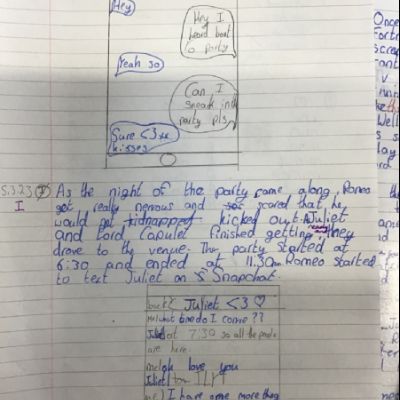 Hey
Hey I
heard bout
a party
Yeah so
Can I
sneak into
party pls
Sure <3 xx
kisses
As the night of the party came along, Romeo
got really nervous and scared that he
would get kidnapped kicked out. Juliet
and Lord Capulet finished getting ready they
drove to the venue. The party started at
6:30 and ended at 11.30. Romeo started
to text Juliet on Snapchat.
Juliet <3 ♡
what time do I come??
at 7:30 so all the people
are here.
ok love you
I have one more thing